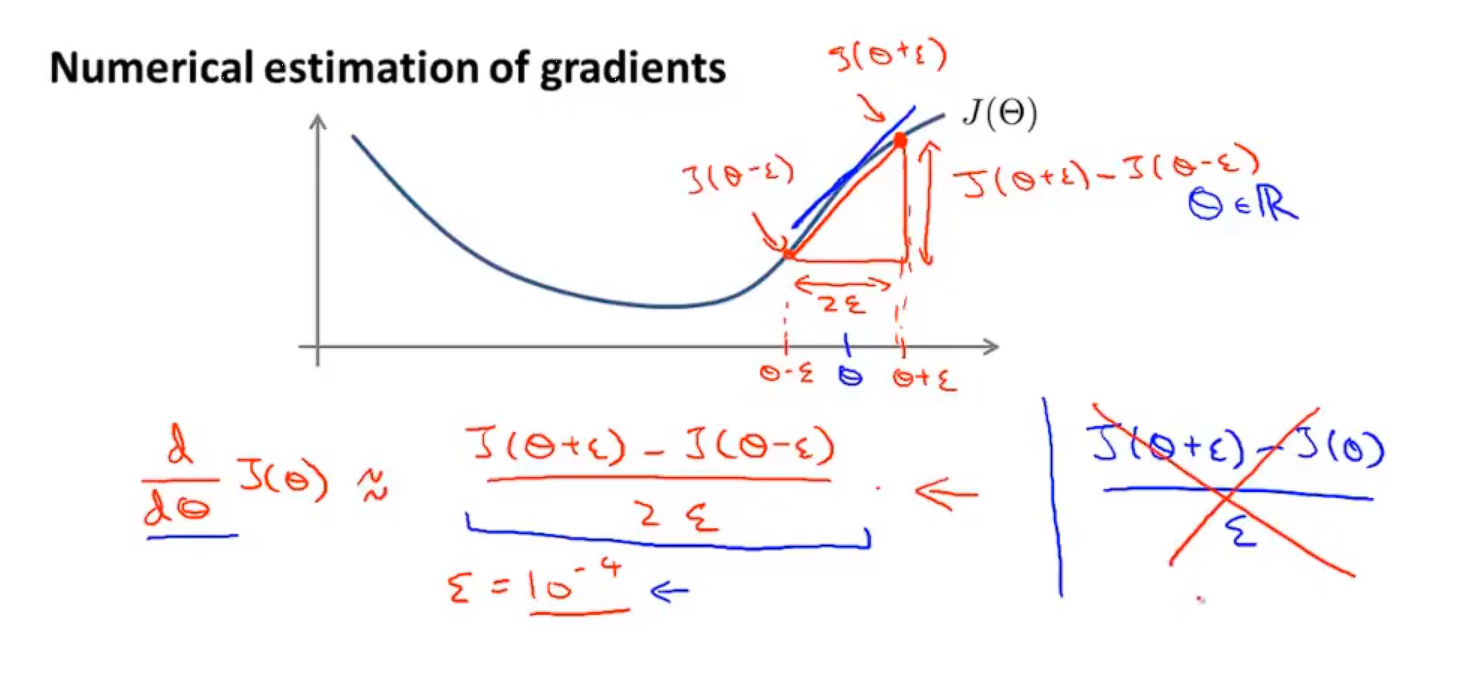 Numerical estimation of gradients
J(θ+ε)
J(Θ)
J(θ-ε)
J(θ+ε)-J(θ-ε)
θ∈ℝ
2ε
θ-ε θ θ+ε
d/dθ J(θ) ≈ J(θ+ε) - J(θ-ε) / 2ε
J(θ+ε) - J(θ) / ε
ε = 10^-4